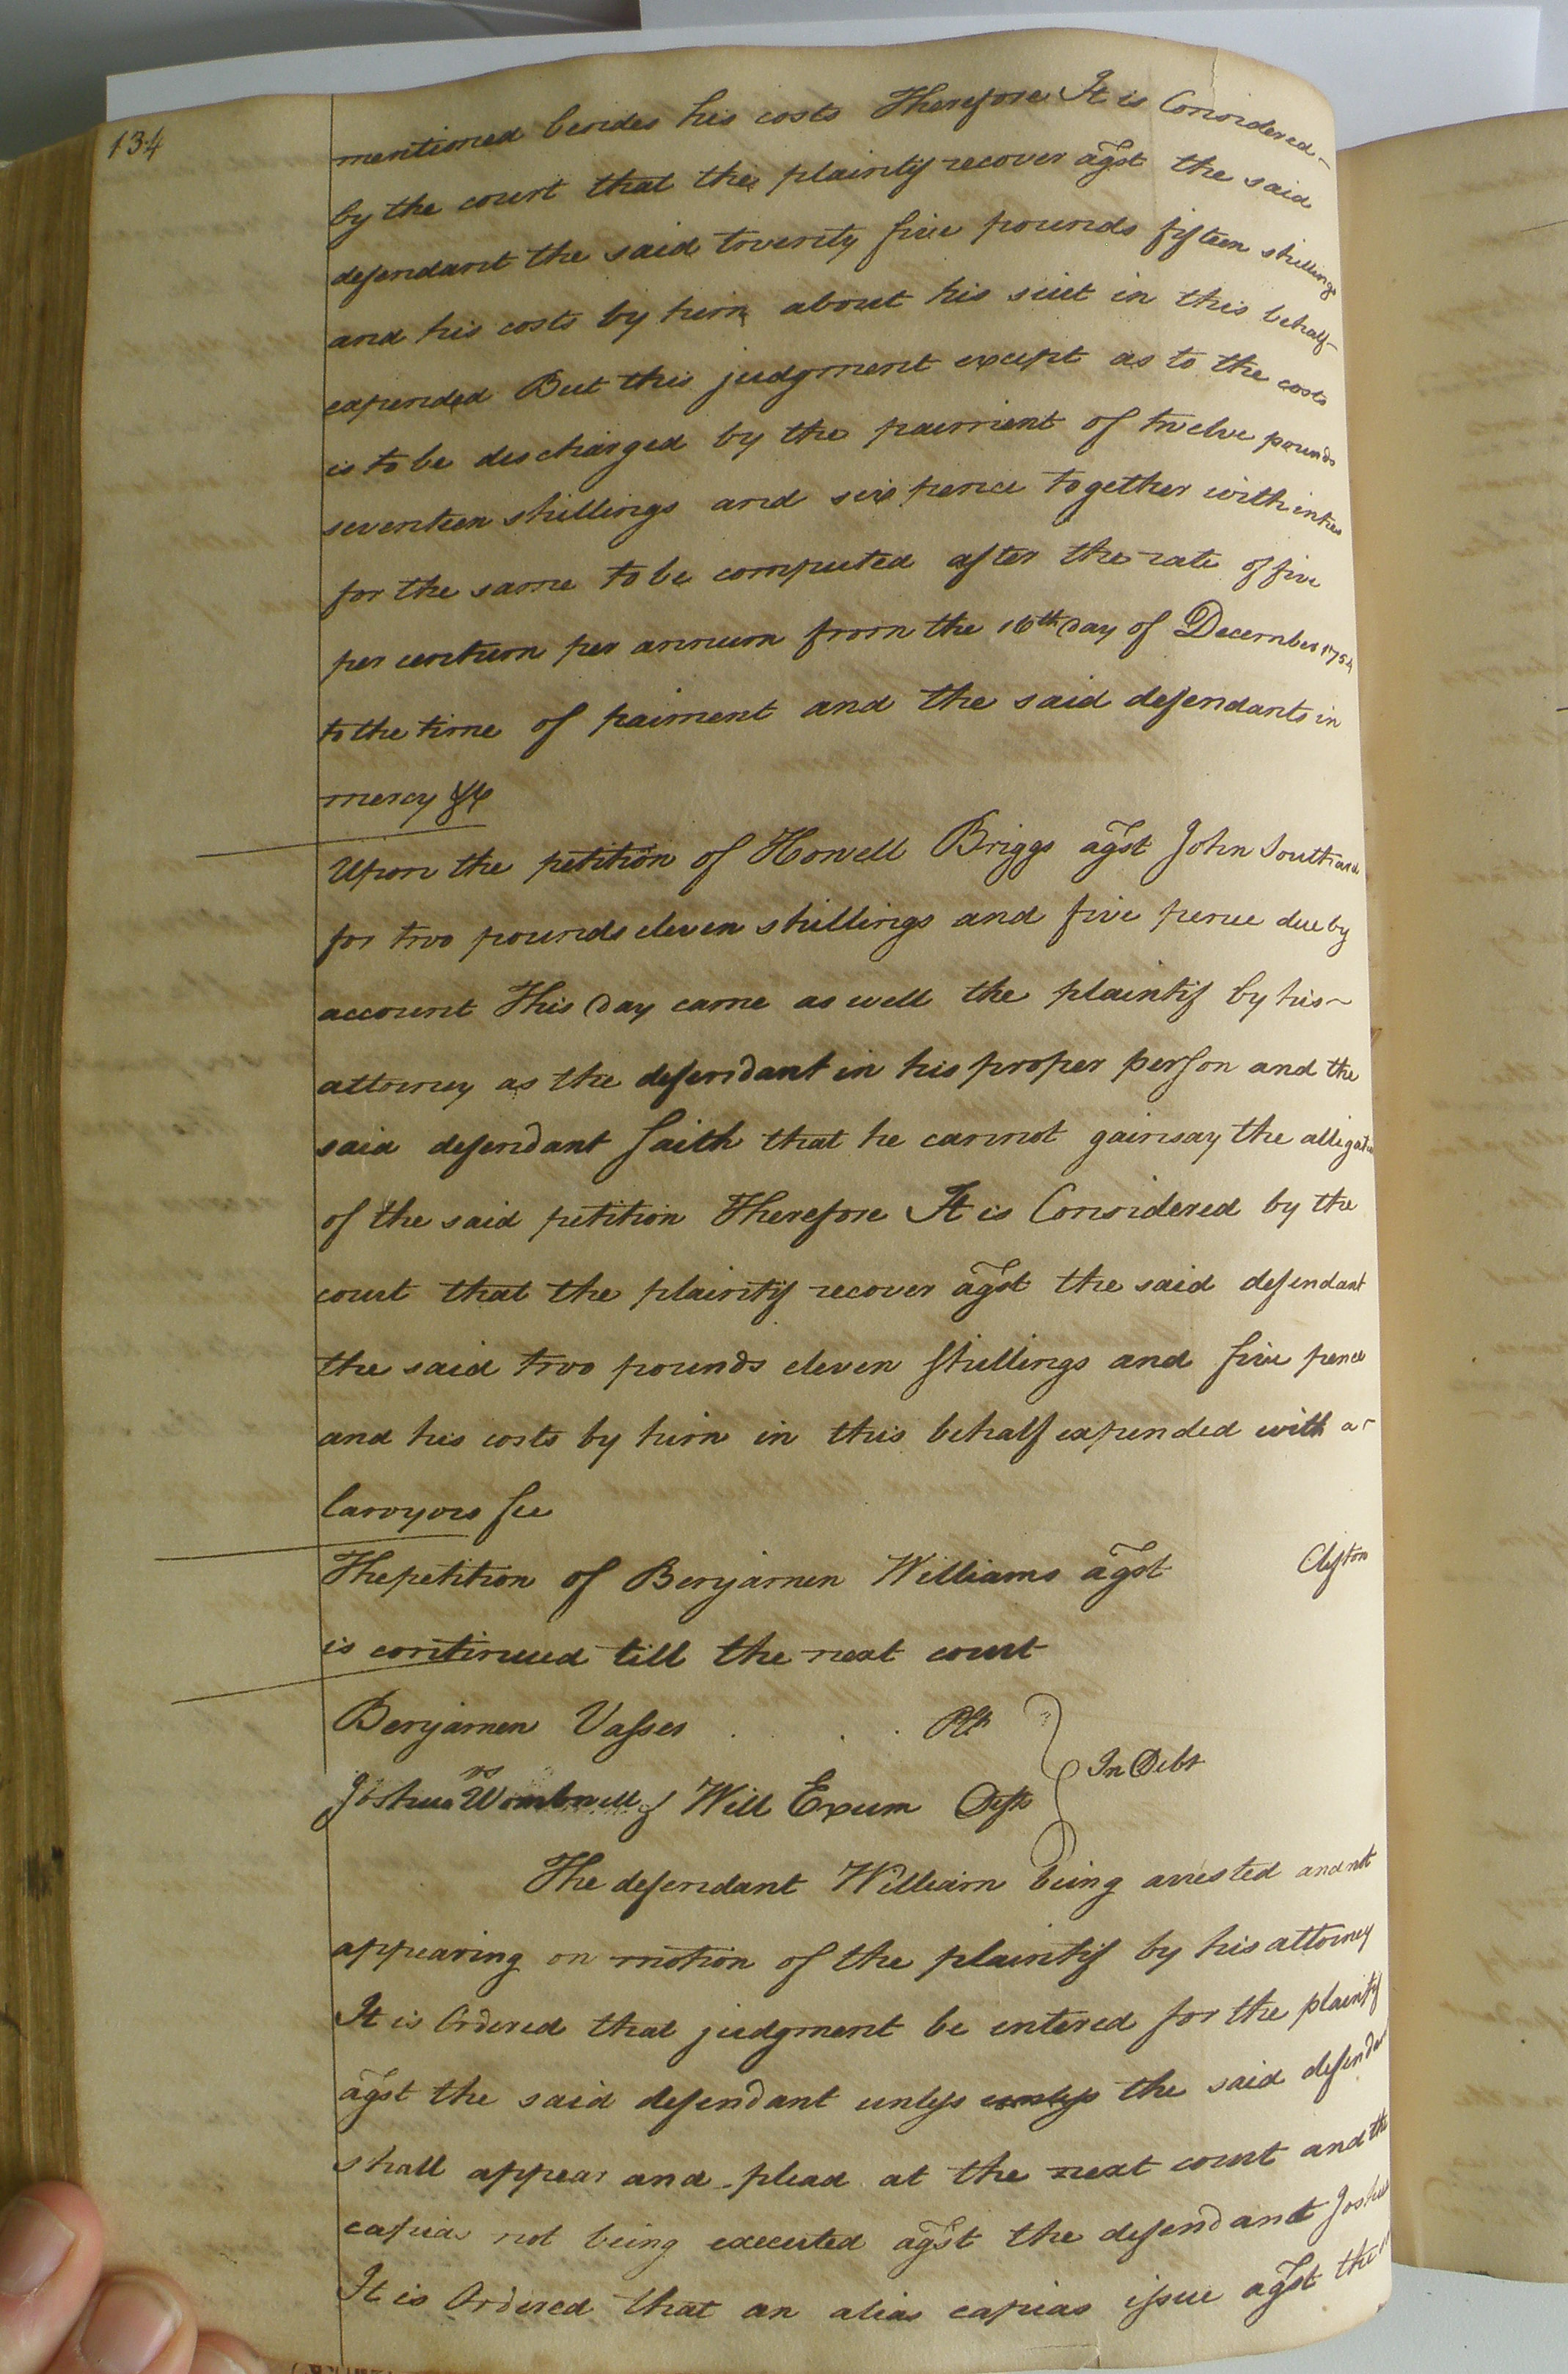 134
mentioned besides his costs Therefore It is Considered
by the court that the plaintif recover agst the said
defendant the said twenty five pounds fifteen shillings
and his costs by him about his suit in this behalf
expended But this judgment except as to the costs
is to be descharged by the paiment of twelve pounds
seventeen shillings and six pence together with intres
for the same to be computed after the rate of five
per centum per annum from the 16th day of December 1754
to the time of paiment and the said defendants in
mercy &c
Upon the petition of Howell Briggs agst John Southard
for two pounds eleven shillings and five pence due by
account This day came as well the plaintif by his
attorney as the defendant in his proper person and the
said defendant saith that he cannot gainsay the alligation
of the said petition Therefore It is Considered by the
court that the plaintif recover agst the said defendant
the said two pounds eleven shillings and five pence
and his costs by him in this behalf expended with a
lawyors fee
The petition of Benjamen Williams agst Clifton
is continued till the next court
Benjamen Vasser Plt
vs In Debt
Joshua Wombwell & Will Exum Defts
The defendant William being arrested and not
appearing on motion of the plaintif by his attorney
It is Ordered that judgment be entered for the plaintif
agst the said defendant unless unless the said defendant
shall appear and plead at the next court and the
capias not being executed agst the defendant Joshua
It is Ordered that an alias capias issue agst the